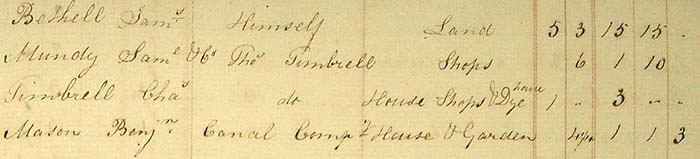 Bethell Sams. Himself Land 5 3 15 15 .
Mundy Saml & Co Thos Timbrell Shops 6 1 10
Timbrell Chas do House Shops & Dye house 1 .. 3 .. ..
Mason Benjn. Canal Compy House & Garden 1 1 3